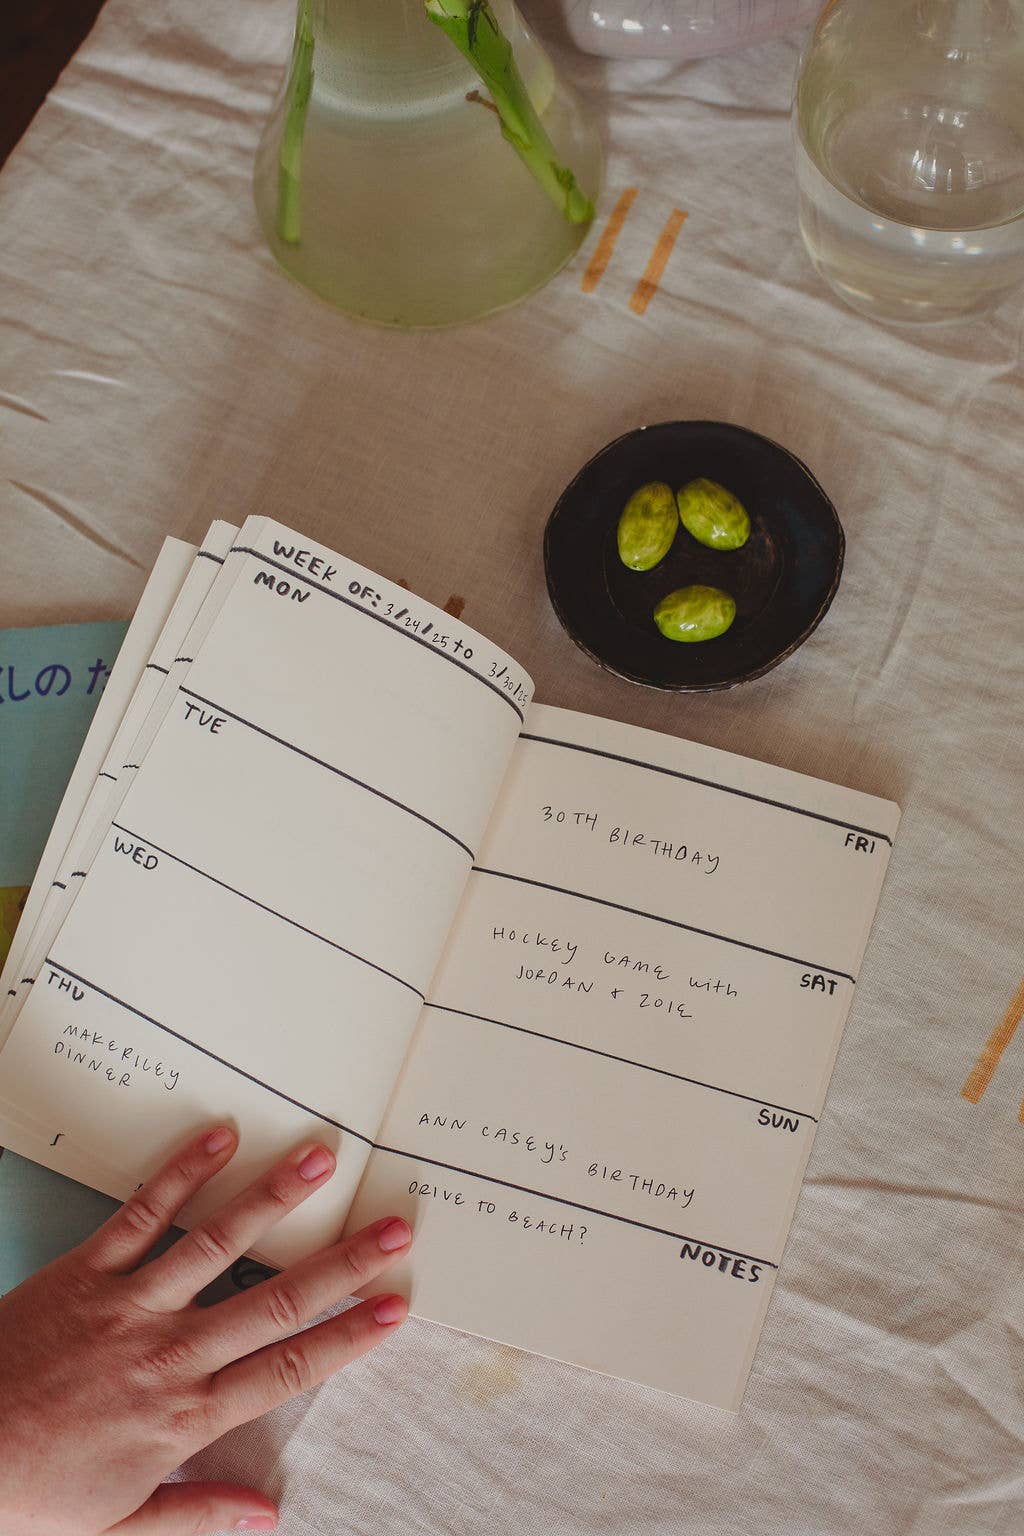 WEEK OF: 3/24/25 to 3/30/25
MON
TUE
WED
THU
MAKE RILEY
DINNER
FRI
30TH BIRTHDAY
SAT
HOCKEY GAME with
JORDAN + ZOIE
SUN
ANN CASEY'S BIRTHDAY
NOTES
DRIVE TO BEACH?
しの た